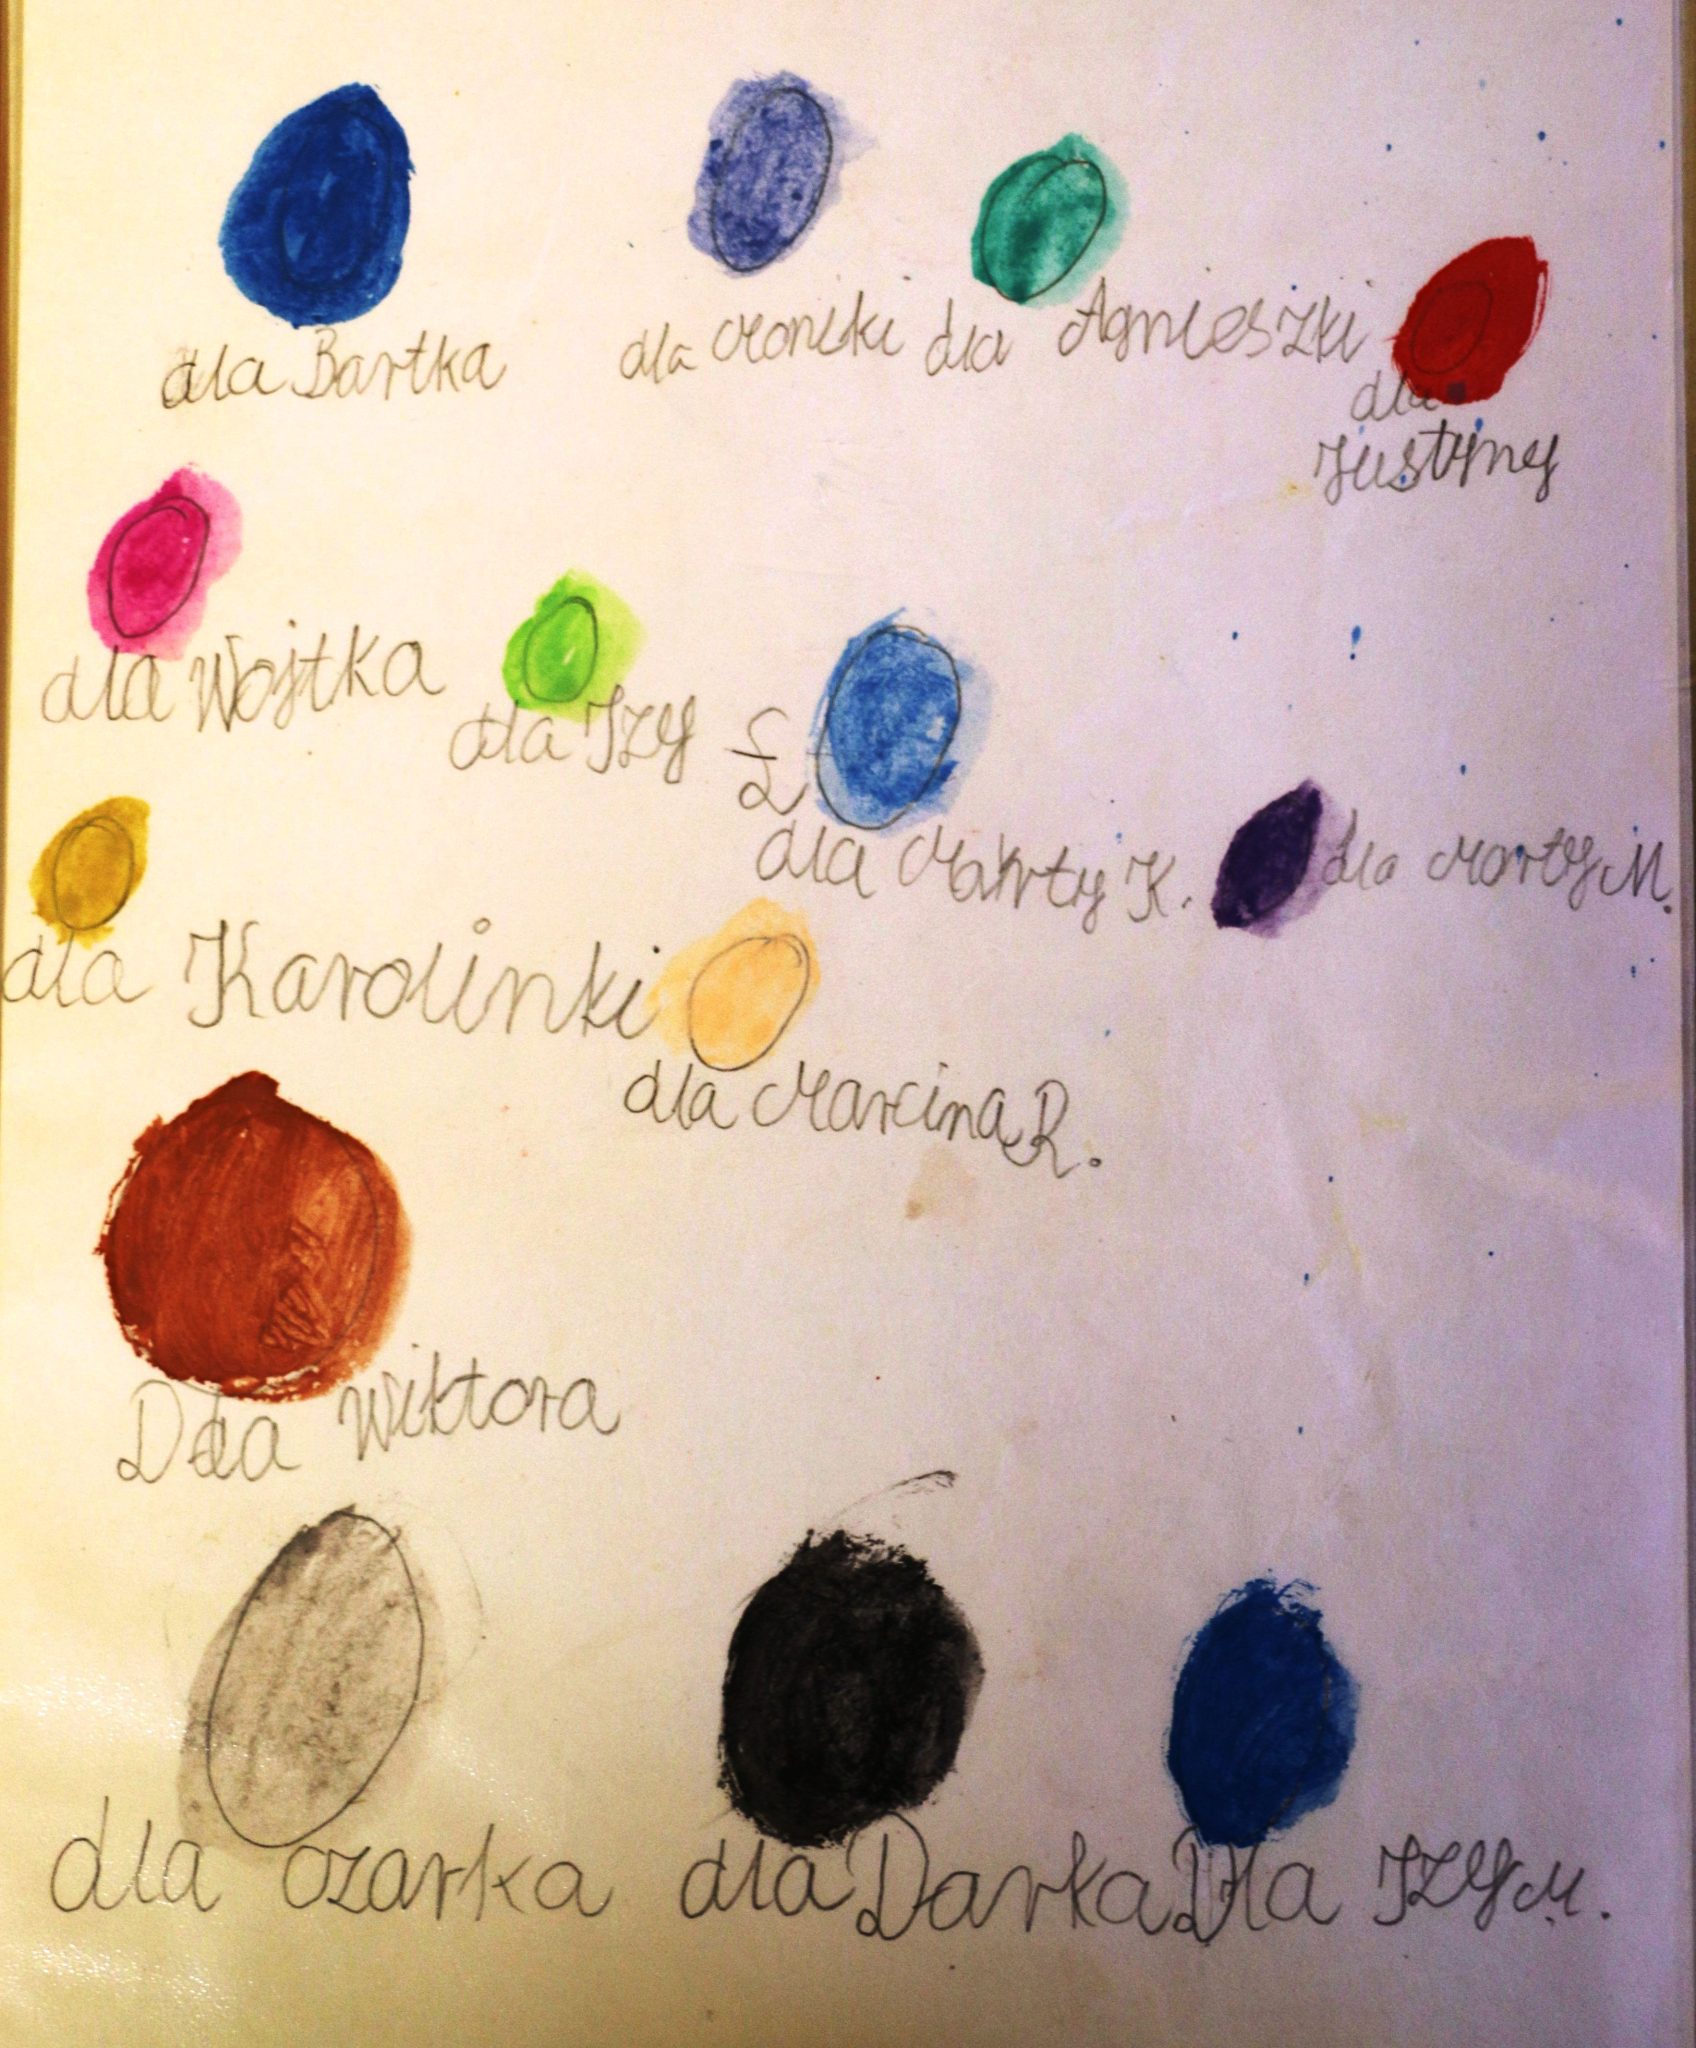 dla Bartka
dla Moniki
dla Agnieszki
dla
Justyny
dla Wojtka
dla Izy Ł
Ł
dla Marty K.
dla Marty M.
dla Karolinki
dla Marcina R.
Dla Wiktora
dla czarka
dla Darka
Dla Izy M.